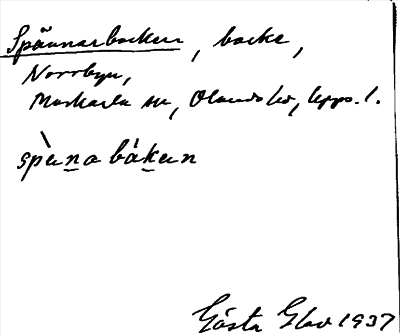 Spånnarbacken, backe,
Norrbyn,
Markarla sn, Olands hd, Upps. l.
spænabákæn
Gösta Glav 1937